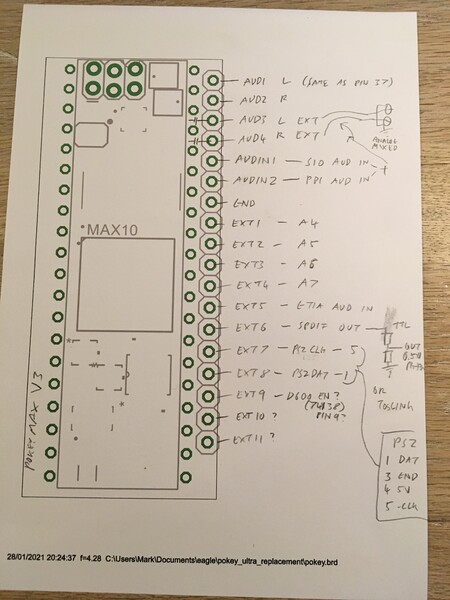 AUD1 L (SAME AS PIN 37)
AUD2 R
AUD3 L EXT
AUD4 R EXT
ANALOG MIXED
AUDIN1 - SID AUD IN
AUDIN2 - PBI AUD IN
+
GND
MAX10
EXT1 - A4
EXT2 - A5
EXT3 - A6
EXT4 - A7
EXT5 - GTIA AUD IN
EXT6 - SPDIF OUT
TTL
OUT
0.5V
EXT7 - PS2 CLK - 5
EXT8 - PS2 DAT - 1
OR
TOSLINK
EXT9 - D600 EN?
EXT10 ?
PIN 9?
EXT11 ?
POKEYMAX V3
PS2
1 DAT
3 GND
4 5V
5 CLK
28/01/2021 20:24:37 f=4.28 C:\Users\Mark\Documents\eagle\pokey_ultra_replacement\pokey.brd